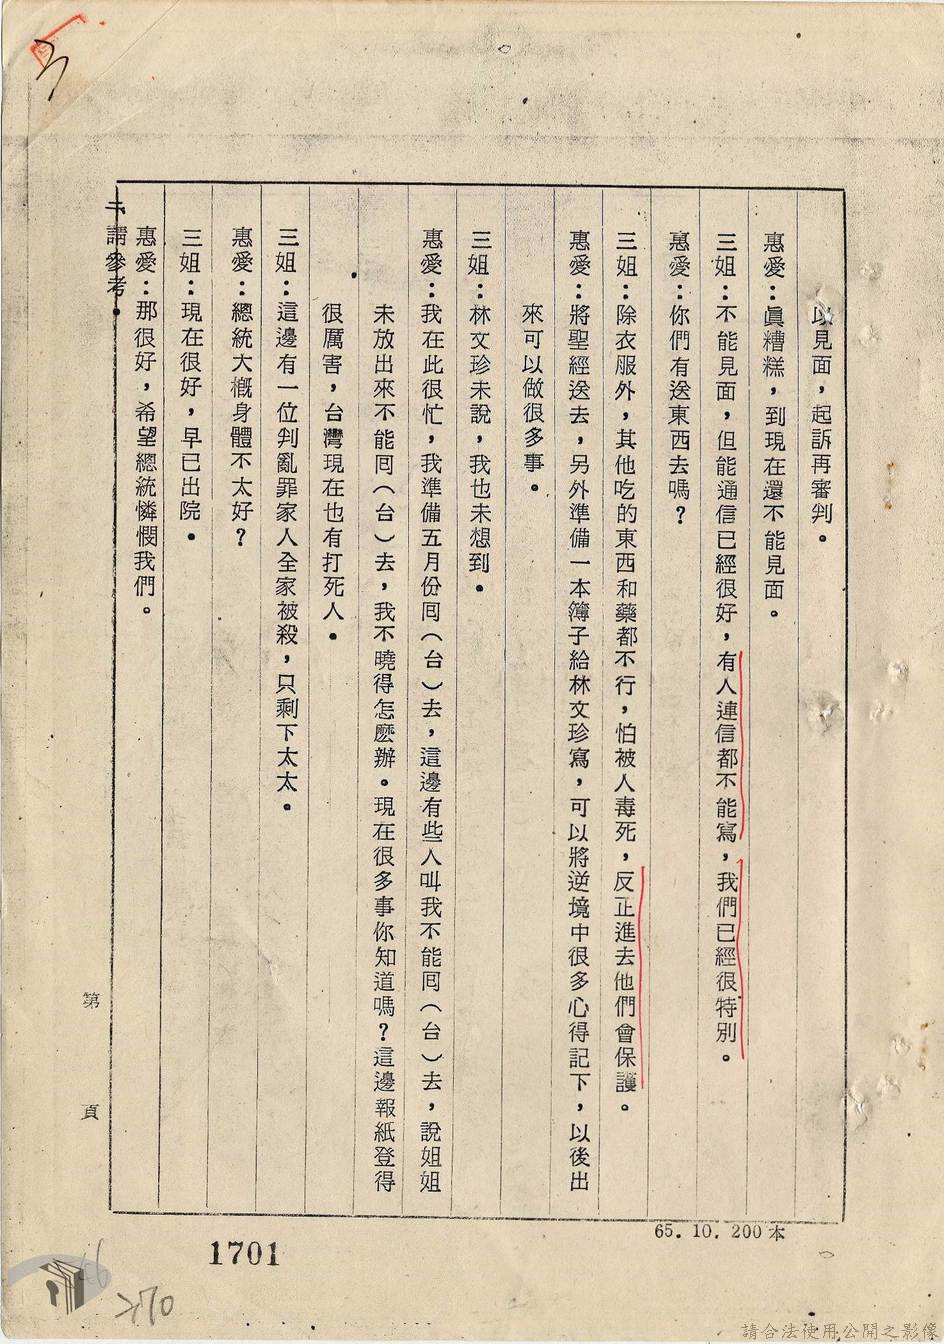 以見面，起訴再審判。
惠愛：眞糟糕，到現在還不能見面。
三姐：不能見面，但能通信已經很好，有人連信都不能寫，我們已經很特別。
惠愛：你們有送東西去嗎？
三姐：除衣服外，其他吃的東西和藥都不行，怕被人毒死，反正進去他們會保護。
惠愛：將聖經送去，另外準備一本簿子給林文珍寫，可以將逆境中很多心得記下，以後出
來可以做很多事。
三姐：林文珍未說，我也未想到。
惠愛：我在此很忙，我準備五月份囘（台）去，這邊有些人叫我不能囘（台）去，說姐姐
未放出來不能囘（台）去，我不曉得怎麽辦。現在很多事你知道嗎？這邊報紙登得
很厲害，台灣現在也有打死人。
三姐：這邊有一位判亂罪家人全家被殺，只剩下太太。
惠愛：總統大槪身體不太好？
三姐：現在很好，早已出院。
惠愛：那很好，希望總統憐憫我們。
二、請參考。
第 頁
65.10.200本
1701
請合法使用公開之影像